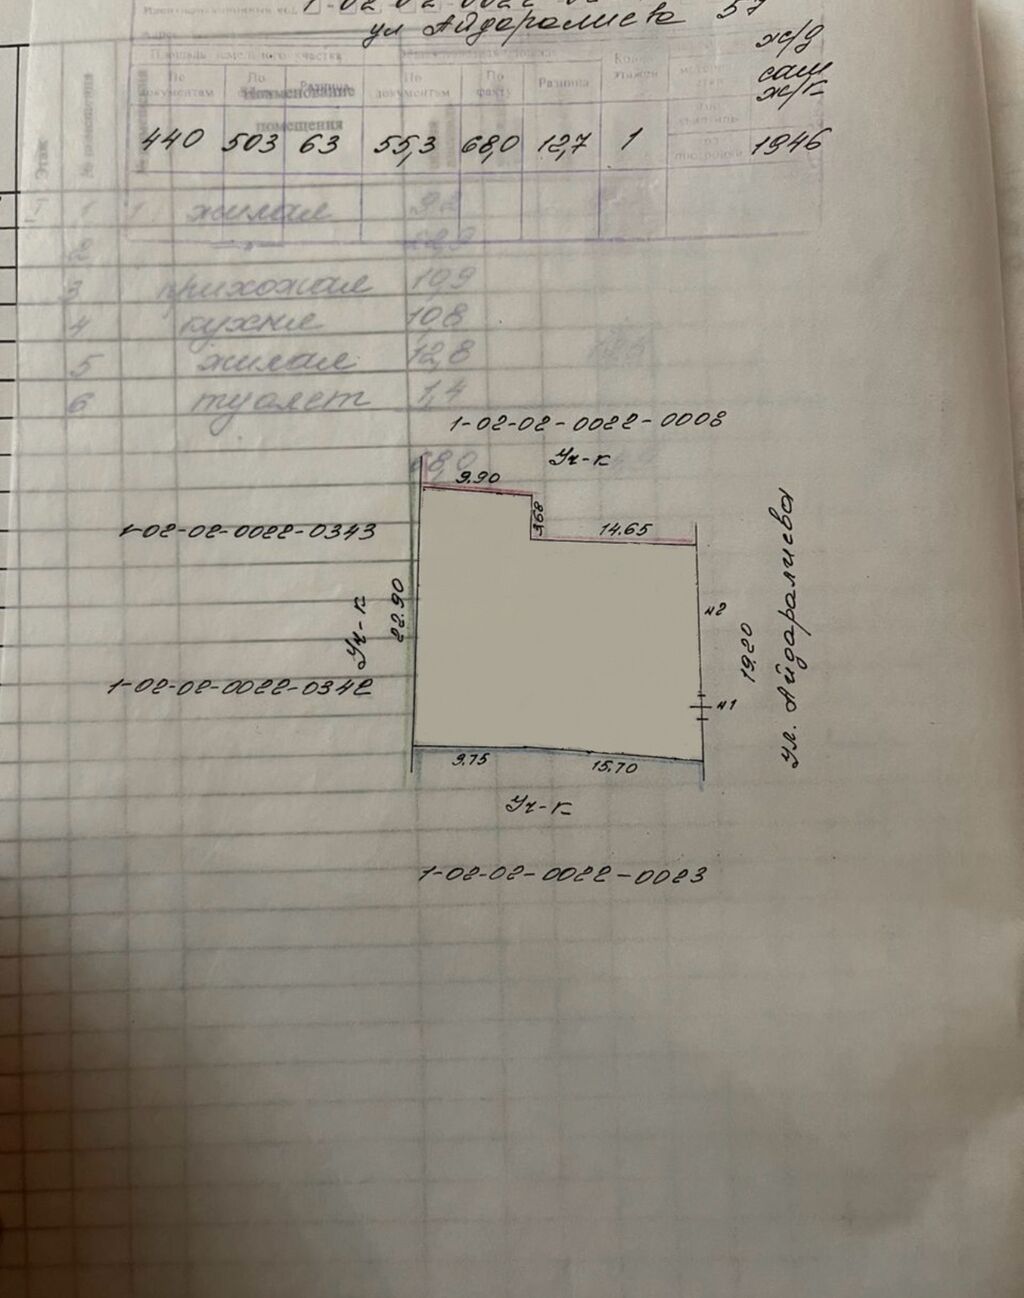 ул Айдаралиева 57
ж/д
саш
ж/к
Площадь земельного участка
По документам
По
Разница
По документам
По факту
Разница
Наименование помещения
Этаж
№ помещения
440 503 63 55,3 68,0 12,7 1 1946
I 1 жилая 9,2
2 —"—
3 прихожая 10,9
4 кухня 10,8
5 жилая 12,8
6 туалет 1,4
68,0
1-02-02-0022-0008
Уч-к
9.90
3,68
14.65
1-02-02-0022-0343
22.90
Уч-к
1-02-02-0022-0342
ч2
19,20
ч1
ул. Айдаралиева
9.75
15.70
Уч-к
1-02-02-0022-0023